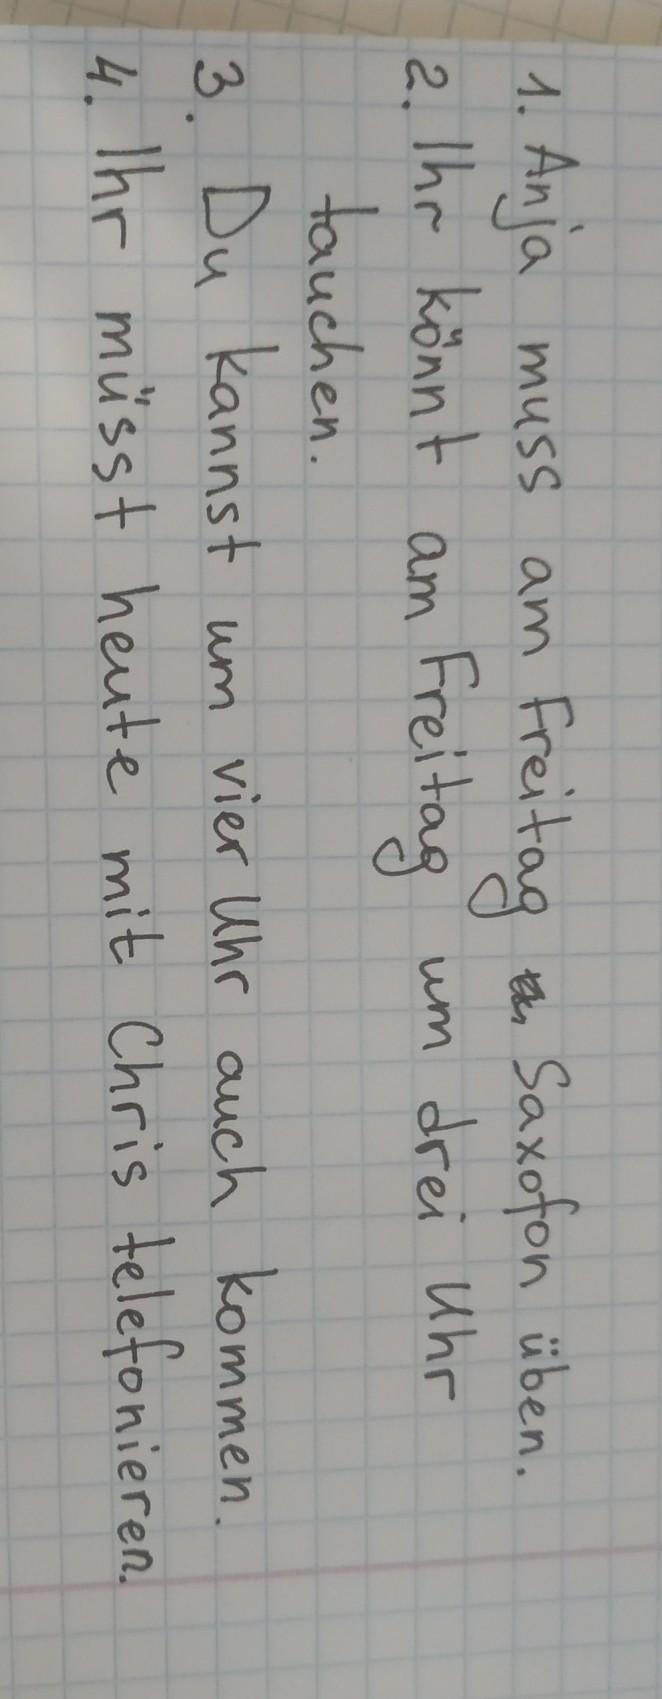 1. Anja muss am Freitag Saxofon üben.
2. Ihr könnt am Freitag um drei Uhr
tauchen.
3. Du kannst um vier Uhr auch kommen.
4. Ihr müsst heute mit Chris telefonieren.